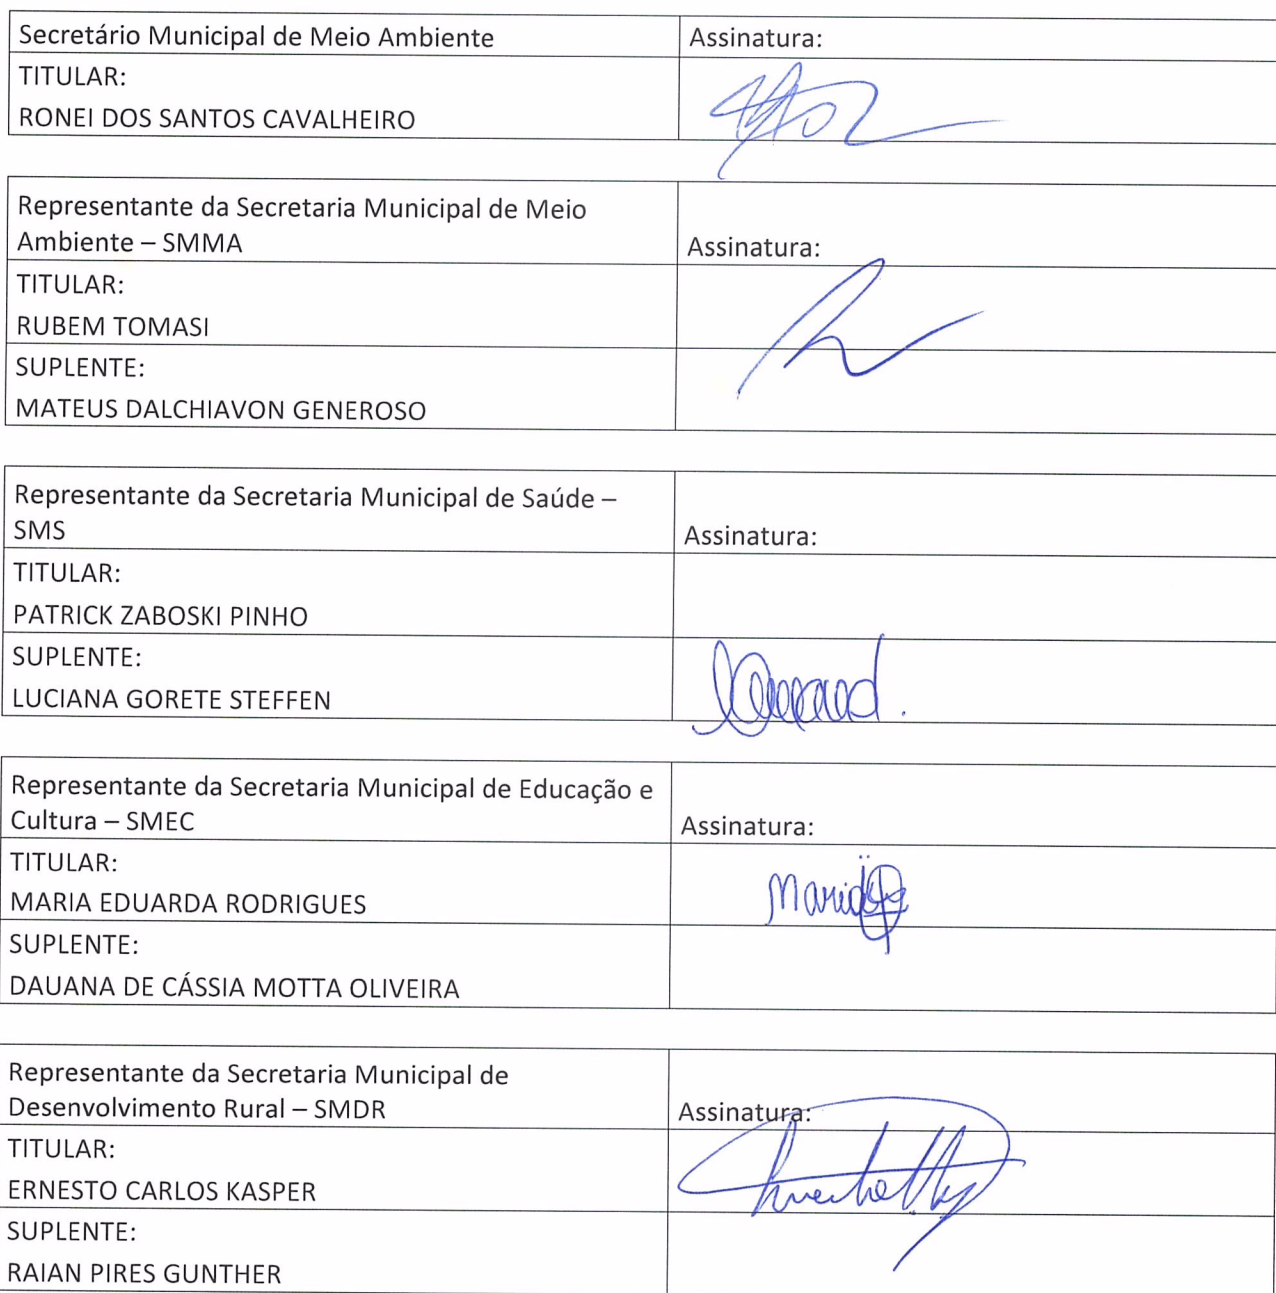 Secretário Municipal de Meio Ambiente Assinatura:
TITULAR:
RONEI DOS SANTOS CAVALHEIRO
Representante da Secretaria Municipal de Meio
Ambiente – SMMA Assinatura:
TITULAR:
RUBEM TOMASI
SUPLENTE:
MATEUS DALCHIAVON GENEROSO
Representante da Secretaria Municipal de Saúde –
SMS Assinatura:
TITULAR:
PATRICK ZABOSKI PINHO
SUPLENTE:
LUCIANA GORETE STEFFEN
Representante da Secretaria Municipal de Educação e
Cultura – SMEC Assinatura:
TITULAR:
MARIA EDUARDA RODRIGUES
SUPLENTE:
DAUANA DE CÁSSIA MOTTA OLIVEIRA
Representante da Secretaria Municipal de
Desenvolvimento Rural – SMDR Assinatura:
TITULAR:
ERNESTO CARLOS KASPER
SUPLENTE:
RAIAN PIRES GUNTHER